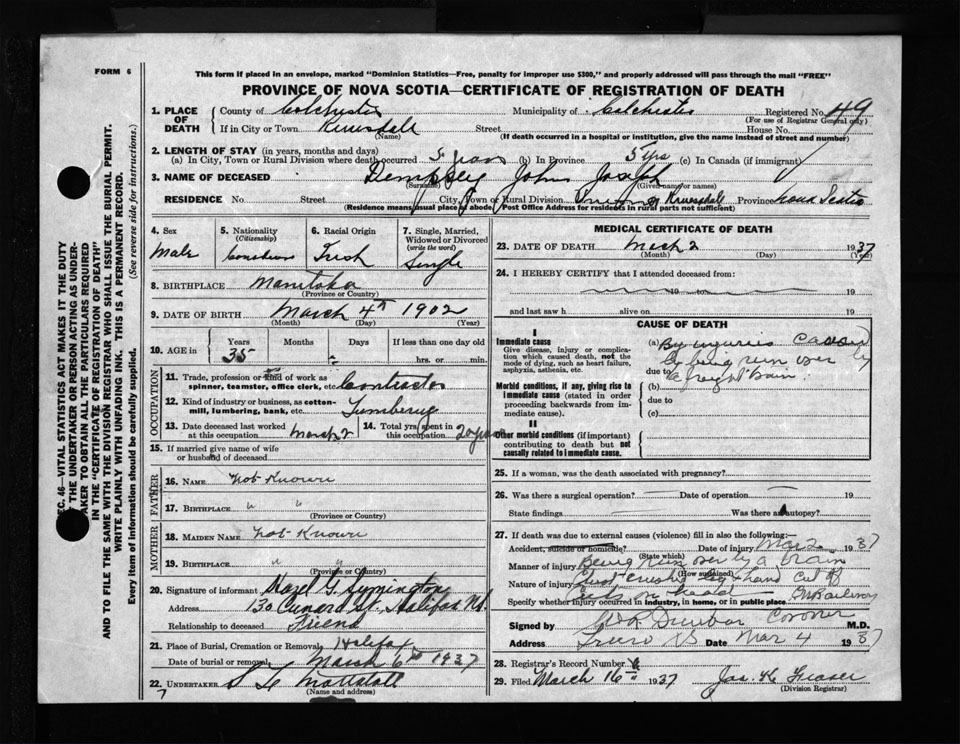 FORM 6
This form if placed in an envelope, marked "Dominion Statistics—Free, penalty for improper use $300," and properly addressed will pass through the mail "FREE"
PROVINCE OF NOVA SCOTIA—CERTIFICATE OF REGISTRATION OF DEATH
SEC. 46—VITAL STATISTICS ACT MAKES IT THE DUTY OF THE UNDERTAKER OR PERSON ACTING AS UNDERTAKER TO OBTAIN ALL THE PARTICULARS REQUIRED IN THE "CERTIFICATE OF REGISTRATION OF DEATH" AND TO FILE THE SAME WITH THE DIVISION REGISTRAR WHO SHALL ISSUE THE BURIAL PERMIT.
WRITE PLAINLY WITH UNFADING INK. THIS IS A PERMANENT RECORD.
Every item of Information should be carefully supplied. (See reverse side for instructions.)
1. PLACE OF DEATH County of Colchester Municipality of Colchester Registered No. 49
(For use of Registrar General only)
If in City or Town Street House No.
(Name) (If death occurred in a hospital or institution, give the name instead of street and number)
2. LENGTH OF STAY (in years, months and days)
(a) In City, Town or Rural Division where death occurred 5 years (b) In Province 5 yrs (c) In Canada (if immigrant)
3. NAME OF DECEASED Dempsey John Joseph
(Surname) (Given name or names)
RESIDENCE No. Street City, Town or Rural Division Province Nova Scotia
(Residence means usual place of abode. Post Office Address for residents in rural parts not sufficient)
4. Sex Male
5. Nationality (Citizenship) Canadian
6. Racial Origin Irish
7. Single, Married, Widowed or Divorced (write the word) Single
8. BIRTHPLACE Manitoba
(Province or Country)
9. DATE OF BIRTH March 4th 1902
(Month) (Day) (Year)
10. AGE in Years 35 Months Days If less than one day old hrs. or min.
OCCUPATION
11. Trade, profession or kind of work as spinner, teamster, office clerk, etc. Contractor
12. Kind of industry or business, as cotton-mill, lumbering, bank, etc. Lumbering
13. Date deceased last worked at this occupation March 2
14. Total yrs. spent in this occupation 20 years
15. If married give name of wife or husband of deceased
FATHER
16. NAME Not Known
17. BIRTHPLACE " "
(Province or Country)
MOTHER
18. MAIDEN NAME Not Known
19. BIRTHPLACE " "
(Province or Country)
20. Signature of informant Hazel G. Symington
Address 130 Cunard St. Halifax N.S.
Relationship to deceased Friend
21. Place of Burial, Cremation or Removal Halifax
Date of burial or removal March 6th 1937
22. UNDERTAKER
(Name and address)
MEDICAL CERTIFICATE OF DEATH
23. DATE OF DEATH March 2 1937
(Month) (Day) (Year)
24. I HEREBY CERTIFY that I attended deceased from:
19 to 19
and last saw h alive on 19
CAUSE OF DEATH
I
Immediate cause
Give disease, injury or complication which caused death, not the mode of dying, such as heart failure, asphyxia, asthenia, etc.
(a) By injuries caused by being run over by
due to a freight train.
Morbid conditions, if any, giving rise to immediate cause (stated in order proceeding backwards from immediate cause).
(b)
due to
(c)
II
Other morbid conditions (if important) contributing to death but not causally related to immediate cause.
25. If a woman, was the death associated with pregnancy?
26. Was there a surgical operation? Date of operation 19
State findings Was there an autopsy?
27. If death was due to external causes (violence) fill in also the following:—
Accident, suicide or homicide? Date of injury Mar 2 1937
(State which)
Manner of injury Being run over by a train
(How sustained)
Nature of injury crushed & hand cut off
Cuts on head
Specify whether injury occurred in industry, in home, or in public place Railway
Signed by Dunbar Coroner M.D.
Address Truro NS Date Mar 4 1937
28. Registrar's Record Number
29. Filed March 16 1937 Jas. K. Fraser
(Division Registrar)